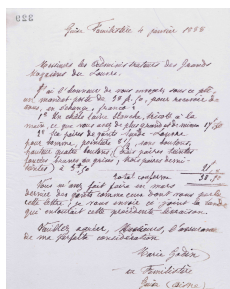 Guise Familistère 4 janvier 1888
Messieurs les Administrateurs des Grands
Magasins du Louvre.
J'ai l'honneur de vous envoyer sous ce pli
un mandat poste de 38 f. 50, pour recevoir de
vous, en échange, franco :
1° Un châle laine blanche, tricoté à la
main, ce que vous avez de plus grand
2° Six paires de gants
pour homme, pointure 8 ½, sans boutons,
quatre boutons, (trois paires teintes
foncées, trois paires
) à 3f,50
total conforme 38,50
Vous m'avez fait faire en mars
dernier des gants comme ceux dont vous parle
cette lettre ; je vous envoie ci-joint la bande
qui entourait cette précédente livraison.
Veuillez agréer, Messieurs, l'assurance
de ma parfaite considération
Marie Godin
au Familistère
Guise (Aisne)